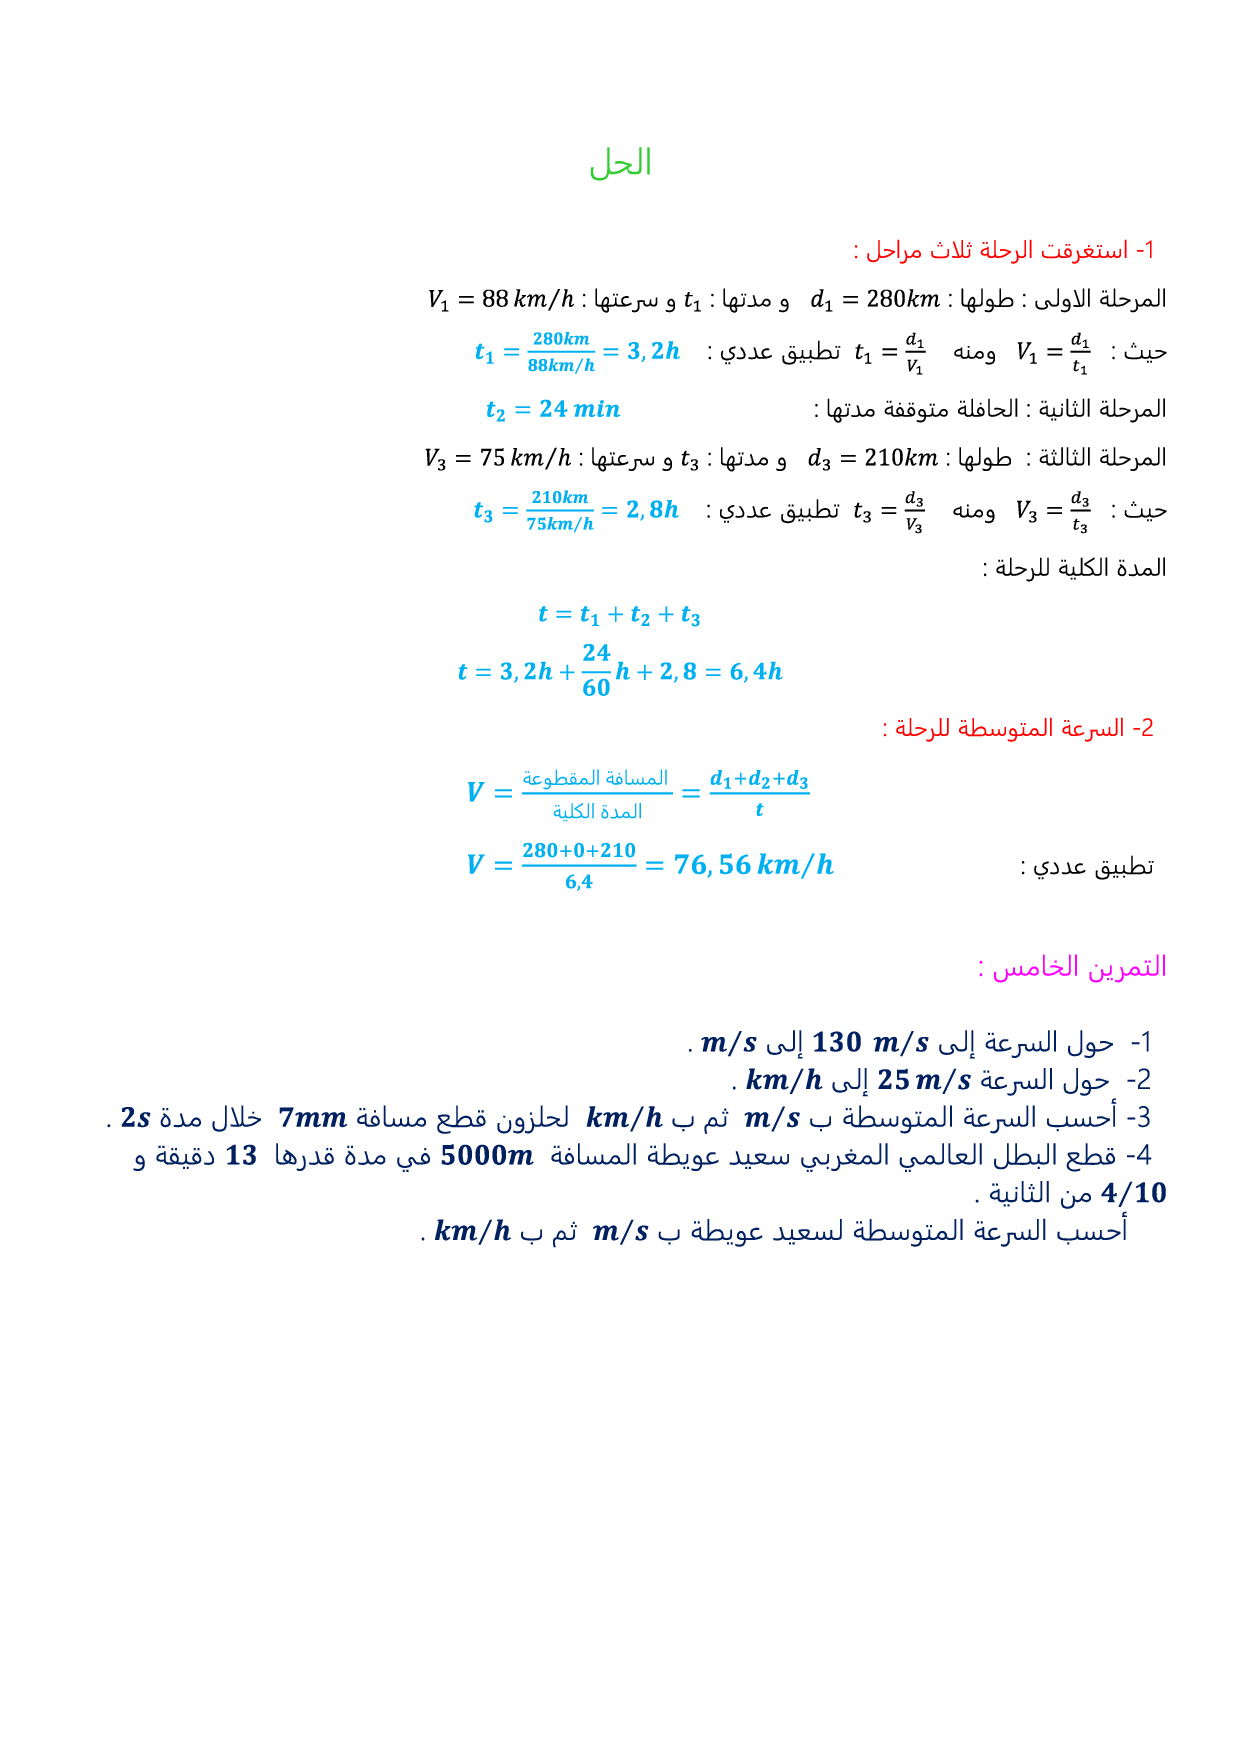 الحل
1- استغرقت الرحلة ثلاث مراحل :
المرحلة الاولى : طولها : d₁ = 280km و مدتها : t₁ و سرعتها : V₁ = 88 km/h
حيث : V₁ = d₁/t₁ ومنه t₁ = d₁/V₁ تطبيق عددي : t₁ = 280km/88km/h = 3,2h
المرحلة الثانية : الحافلة متوقفة مدتها : t₂ = 24 min
المرحلة الثالثة : طولها : d₃ = 210km و مدتها : t₃ و سرعتها : V₃ = 75 km/h
حيث : V₃ = d₃/t₃ ومنه t₃ = d₃/V₃ تطبيق عددي : t₃ = 210km/75km/h = 2,8h
المدة الكلية للرحلة :
t = t₁ + t₂ + t₃
t = 3,2h + 24/60 h + 2,8 = 6,4h
2- السرعة المتوسطة للرحلة :
V = المسافة المقطوعة/المدة الكلية = d₁+d₂+d₃/t
تطبيق عددي : V = 280+0+210/6,4 = 76,56 km/h
التمرين الخامس :
1- حول السرعة إلى 130 m/s إلى m/s .
2- حول السرعة 25 m/s إلى km/h .
3- أحسب السرعة المتوسطة ب m/s ثم ب km/h لحلزون قطع مسافة 7mm خلال مدة 2s .
4- قطع البطل العالمي المغربي سعيد عويطة المسافة 5000m في مدة قدرها 13 دقيقة و
4/10 من الثانية .
أحسب السرعة المتوسطة لسعيد عويطة ب m/s ثم ب km/h .